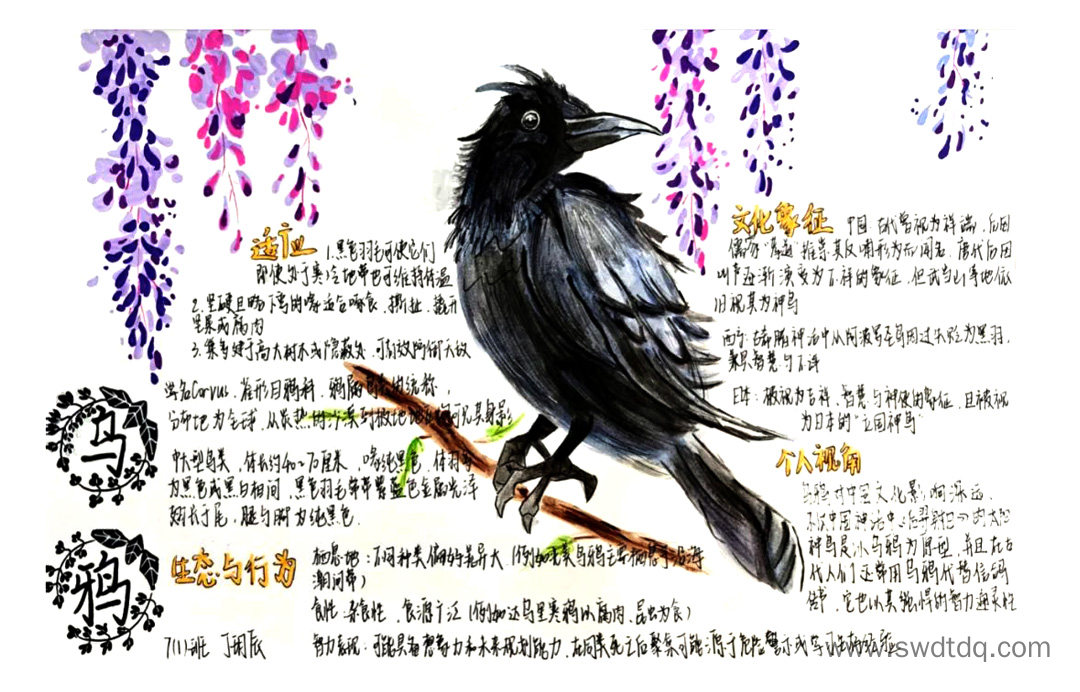 适应
1.黑色羽毛可使它们
即使处于寒冷地带也可维持体温
2.坚硬且略下弯的喙适合啄食、撕扯、撬开
坚果或腐肉
3.巢多建于高大树木或隐蔽处,可有效防御天敌
学名Corvus,雀形目鸦科,鸦属鸟类的统称,
分布地为全球,从炎热的沙漠到极地
中大型鸟类,体长约40-70厘米,喙纯黑色,体羽多
为黑色或黑白相间,黑色羽毛常带紫蓝色金属光泽
翅长于尾,腿与脚为纯黑色.
乌
鸦
生态与行为
栖息地:不同种类偏好差异大(例如
潮间带)
食性:杂食性,食源广泛(例如达乌里寒鸦以腐肉、昆虫为食)
智力表现:可能具有思考能力和未来规划能力,在同类死亡后聚集可能源于危险警示或
7(1)班
文化象征
中国:古代曾视为祥瑞,后因
儒家"孝道"推崇其反哺形为而闻名,唐代后因
叫声逐渐演变为不祥的象征,但武当山等地依
旧视其为神鸟
西方:古希腊神话中从阿波罗圣鸟因过失贬为黑羽,
兼具智慧与不详
日本:被视为吉祥、智慧与神使的象征,且被视
为日本的"立国神鸟"
个人视角
乌鸦对中国文化影响深远,
不仅中国神话中《后羿射日》的太阳
神鸟是以乌鸦为原型,并且在古
代人们还常用乌鸦代替信鸽
传书,它也以其
www.iswdtdq.com